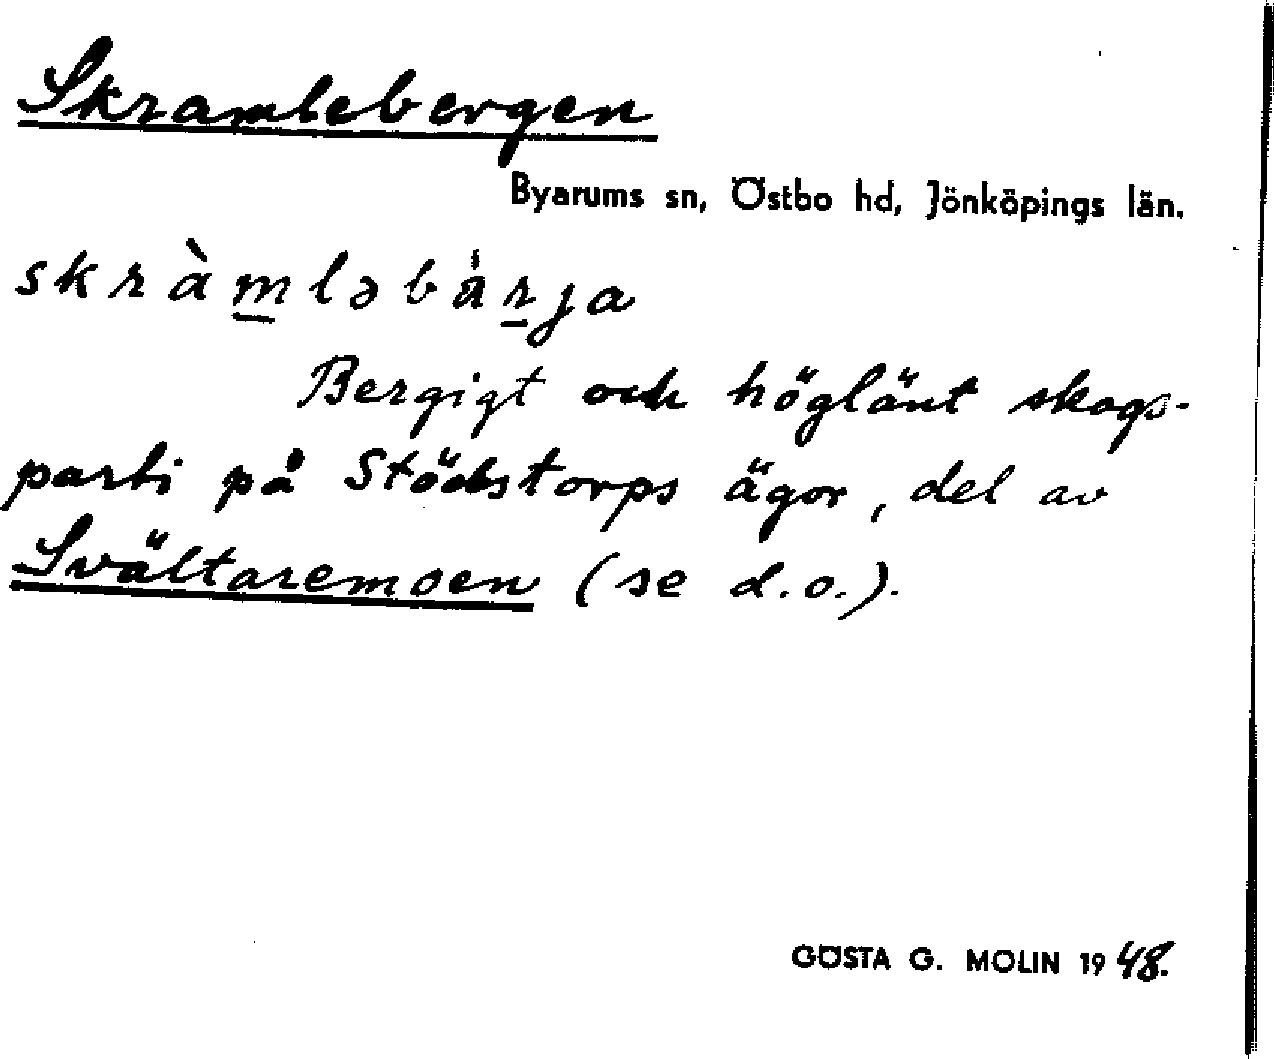 Skramlebergen
Byarums sn, Östbo hd, Jönköpings län.
skràm̲ləbá̈r̲ja
Bergigt och höglänt skogs-
parti på Stödstorps ägor, del av
Svältaremoen (se d.o.).
GÖSTA G. MOLIN 1948.